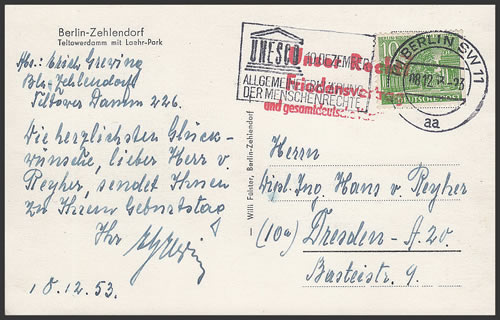 Berlin-Zehlendorf
Teltowerdamm mit Laehr-Park
Abs.: Erich Greving
Bln-Zehlendorf
Teltower Damm 226.
Die herzlichsten Glück-
wünsche, lieber Herr v.
Reyher, sendet Ihnen
zu Ihrem Geburtstag
Ihr
18.12.53.
Willi Fülster, Berlin-Zehlendorf
UNESCO
10 DEZEMBER
ALLGEMEINE
DER MENSCHENRECHTE
Unser
Friedensver
und gesamtdeutsche
10
BERLIN SW 11
aa
Herrn
Dipl. Ing. Hans v. Reyher
(10a) Dresden - A. 20.
Basteistr. 9.